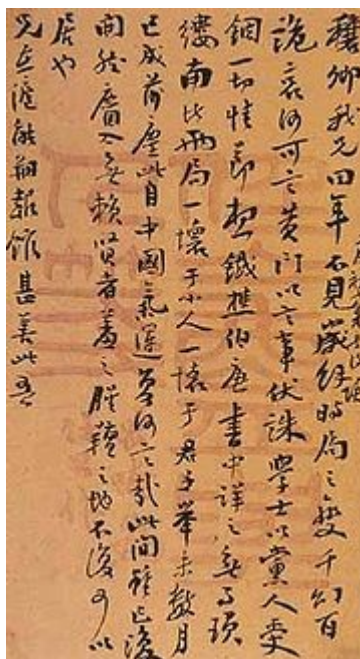 穰卿我兄四年不見歲經時局之變千幻百
詭哀何可言黃門以言事伏誅學士以黨人受
錮一切情節想鐵樵伯唐書中詳之無事瑣
縷南北兩局一壞于小人一壞于君子舉未數月
已成前塵此自中國氣運何言哉此間雖已復
開然麕入無賴賢者羞之腥羶之地不復可以
居也
兄在滬能翻報館甚善此吾